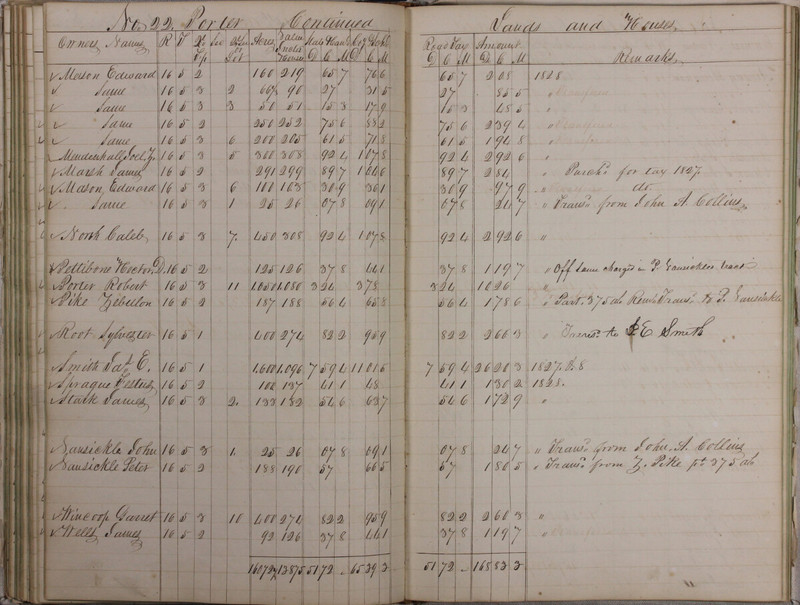 No. 22. Porter Continued Lands and Houses
Owners Names R T Acres Road Tax Amount Remarks
Mason Edward 16 5 2 160 219 65 7 76 6 65 7 2 08 1828
Same 16 5 3 2 90 27 31 5 27 85 5
Same 16 5 3 3 50 51 15 3 17 9 15 3 48 5 "
Same 16 5 2 250 252 75 6 88 2 75 6 2 39 4
Same 16 5 3 6 200 205 61 5 71 8 61 5 1 94 8 "
Mendenhall 16 5 3 5 300 308 92 4 1 07 8 92 4 2 92 6 "
Marsh James 16 5 2 291 299 89 7 1 04 6 89 7 2 84 " Purchd for tax 1827
Mason Edward 16 5 3 6 100 103 30 9 36 1 30 9 97 9 " do
Same 16 5 3 1 25 26 07 8 09 1 07 8 24 7 " Transd from John A. Collins
North Caleb 16 5 3 7 450 308 92 4 1 07 8 92 4 2 92 6 "
Pettibone Hector D. 16 5 2 125 126 37 8 44 1 37 8 1 19 7 " Off same charged in P. Vansickles tract
Porter Robert 16 5 3 11 1050 1080 3 24 3 78 3 24 10 26 "
Pike Zebellon 16 5 2 187 188 56 4 65 8 56 4 1 78 6 " Part. 37 5 ab Transd to P. Vansickle
Root Sylvester 16 5 1 400 274 82 2 95 9 82 2 2 60 3 " Transd to E Smith
Smith E. 16 5 1 1,096 7 59 4 11 01 5 7 59 4 26 20 3 1827 & 8
Sprague Festus 16 5 2 108 137 41 1 48 41 1 1 30 2 1828.
Stark James 16 5 3 2 133 182 54 6 63 7 54 6 1 72 9 "
Vansickle John 16 5 3 1 25 26 07 8 09 1 07 8 24 7 " Transd from John A. Collins
Vansickle Peter 16 5 2 188 190 57 66 5 57 1 80 5 " Transd from Z. Pike pt 37 5 ab
Wincoop Garret 16 5 3 10 400 274 82 2 95 9 82 2 2 60 3 "
Wells James 16 5 2 92 126 37 8 44 1 37 8 1 19 7 "
51 72 51 72 168 53 3